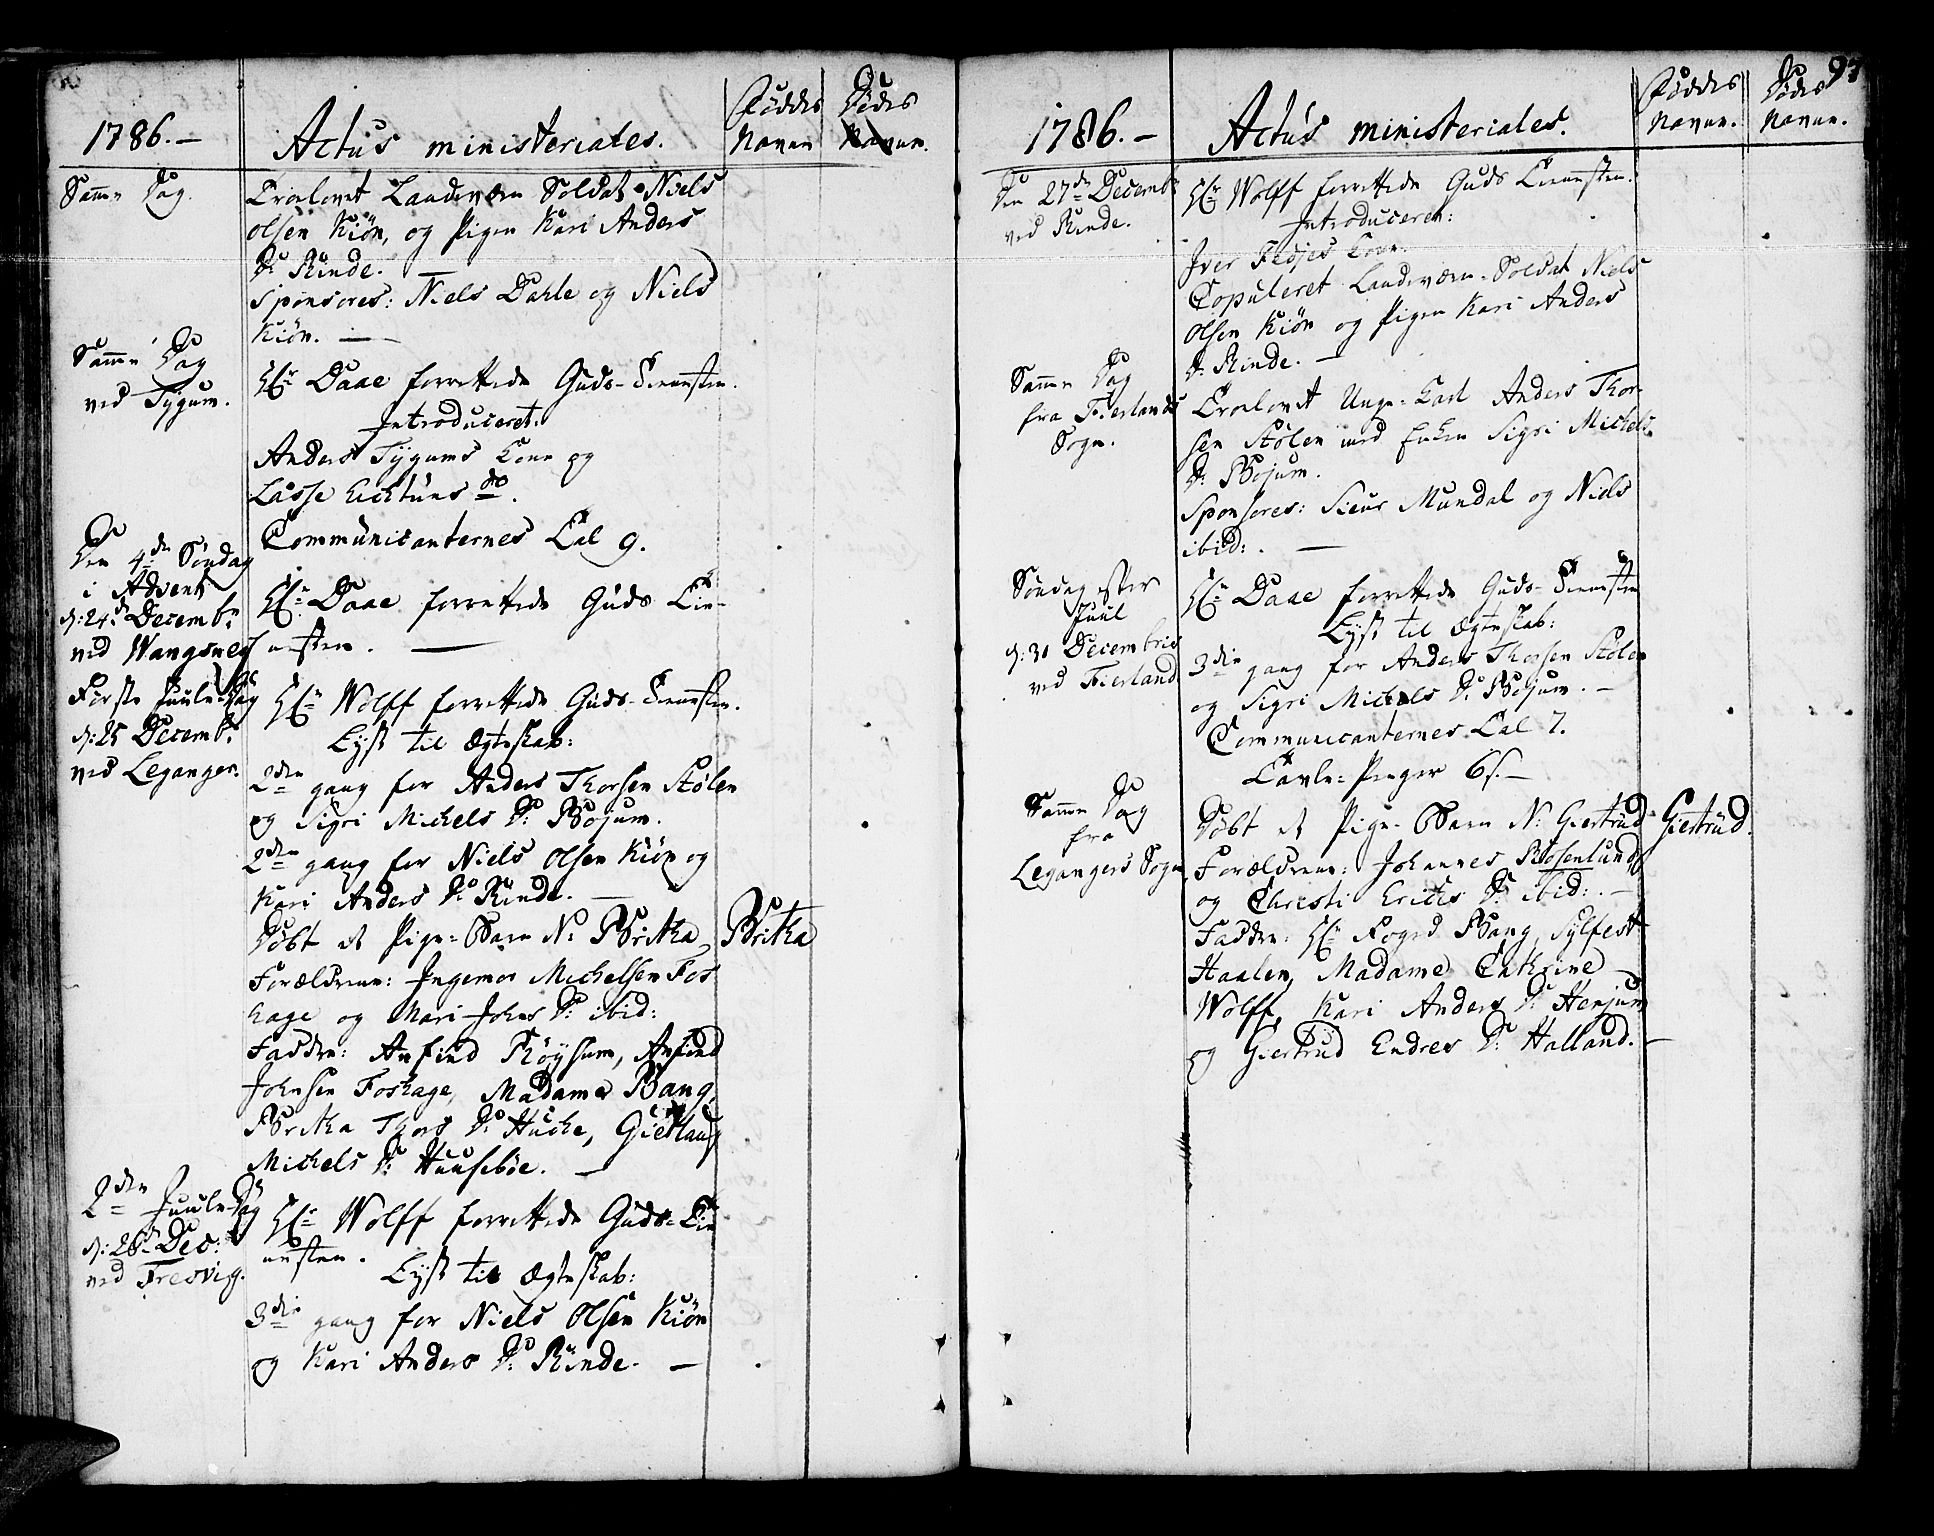 1786.— Actus ministeriales. Føddes Navne Dødes Navne.
Samme Dag. Trolovet Landeværn Soldat Niels
Olsen Kiøn, og Pigen Kari Anders
D: Rinde.
Sponsores: Niels Dahle og Niels
Kiøn. —
Samme Dag
ved Tygum.
Hr: Daae forrettede Guds-Tienesten.
Introduceret.
Anders Tygums Kone og
Lasse Eicktuns do.
Communicanternes Tal 9.
Den 4de Søndag
i Advent
d: 24de Decembr:
ved Wangsnes
Hr: Daae forrettede Guds Tie-
nesten. —
Første Juule-Dag
d: 25 Decembr:
ved Leganger.
Hr: Wolff forrettede Guds-Tienesten.
Lyst til Ægteskab:
2den gang for Anders Thorsen Stølen
og Sigri Michels D: Bojum.
2den gang for Niels Olsen Kiøn og
Kari Anders D: Rinde. —
Døbt et Pige-Barn N: Britha Britha
Forældrene: Ingemor Michelsen Fos
hage og Mari Johns D: ibid:
Faddre: Anfind Røysum, Anfind
Johnsen Foshage, Madame Bang,
Britha Thors D: Huke, Giertlaug
Michels D: Huusebøe. —
2den Juule-Dag
d: 26de Dec:
ved Fresvig.
Hr: Wolff forrettede Guds-Tie
nesten.
Lyst til Ægteskab:
3die gang for Niels Olsen Kiøn
og Kari Anders D: Rinde. —
97
1786.— Actus ministeriales. Føddes Navne. Dødes Navne.
Den 27de Decembr:
ved Rinde.
Hr: Wolff forrettede Guds Tienesten.
Introduceret:
Iver Fløjes Kone.
Copuleret Landeværn-Soldat Niels
Olsen Kiøn og Pigen Kari Anders
D: Rinde. —
Samme Dag
fra Fierlands
Sogn.
Trolovet Unge-Karl Anders Thor-
sen Stølen med Enken Sigri Michels
D: Bojum.
Sponsores: Siur Mundal og Niels
ibid: . —
Søndag efter
Juul
d: 31 Decembris
ved Fierland
Hr: Daae forrettede Guds-Tienesten
Lyst til Ægteskab:
3die gang for Anders Thorsen Stølen
og Sigri Michels D: Bojum. —
Communicanternes Tal 7.
Tavle-Penger 6 s. —
Samme Dag
fra
Legangers Sogn
Døbt et Pige-Barn N: Giertrud Giertrud.
Forældrene: Johannes Rosenlund
og Christi Erichs D: ibid: . —
Faddre: Hr: Foged Bang, Sylfest
Haalen, Madame Cathrine
Wolff, Kari Anders D: Henjum
og Giertrud Endres D: Halland. —